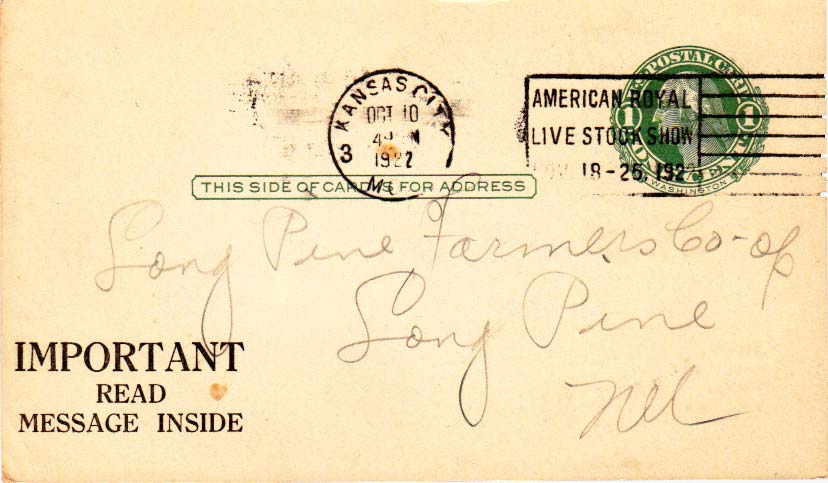 KANSAS CITY
OCT 10
1922
3
MO
AMERICAN ROYAL
LIVE STOCK SHOW
18-25, 192
POSTAL CARD
1 1
WASHINGTON
THIS SIDE OF CARD IS FOR ADDRESS
Long Pine Farmers Co-op
Long Pine
Neb
IMPORTANT
READ
MESSAGE INSIDE